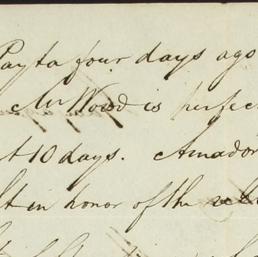 Payta four days ago
Mr Wood is perfec
t 10 days. Amador
lt in honor of the